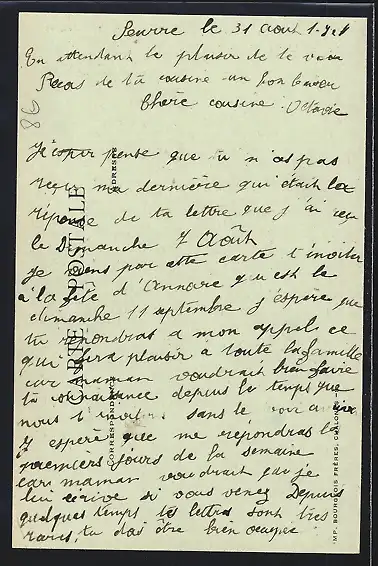 Seurre le 31 Août
En attendant le plaisir de te voir
Reçois de ta cousine un bon baiser
Chère cousine Octavie
Je pense que tu n'as pas
reçu ma dernière qui était la
réponse de ta lettre que j'ai reçu
le Dimanche 7 Août
Je viens par cette carte t'inviter
à la fête d'Annoire qui est le
dimanche 11 septembre j'espère que
tu répondras a mon appel ce
qui fera plaisir à toute la famille
car maman voudrait bien faire
ta connaissance depuis le temps que
nous t'invitons sans te voir
J'espère que me répondras les
premiers jours de la semaine
car maman voudrait que je
lui écrive si vous venez Depuis
quelques temps tes lettres sont très
rares, tu dois être bien occupée
86
CARTE POSTALE
CORRESPONDANCE
ADRESSE
IMP. BOURGEOIS FRÈRES, CHALON-